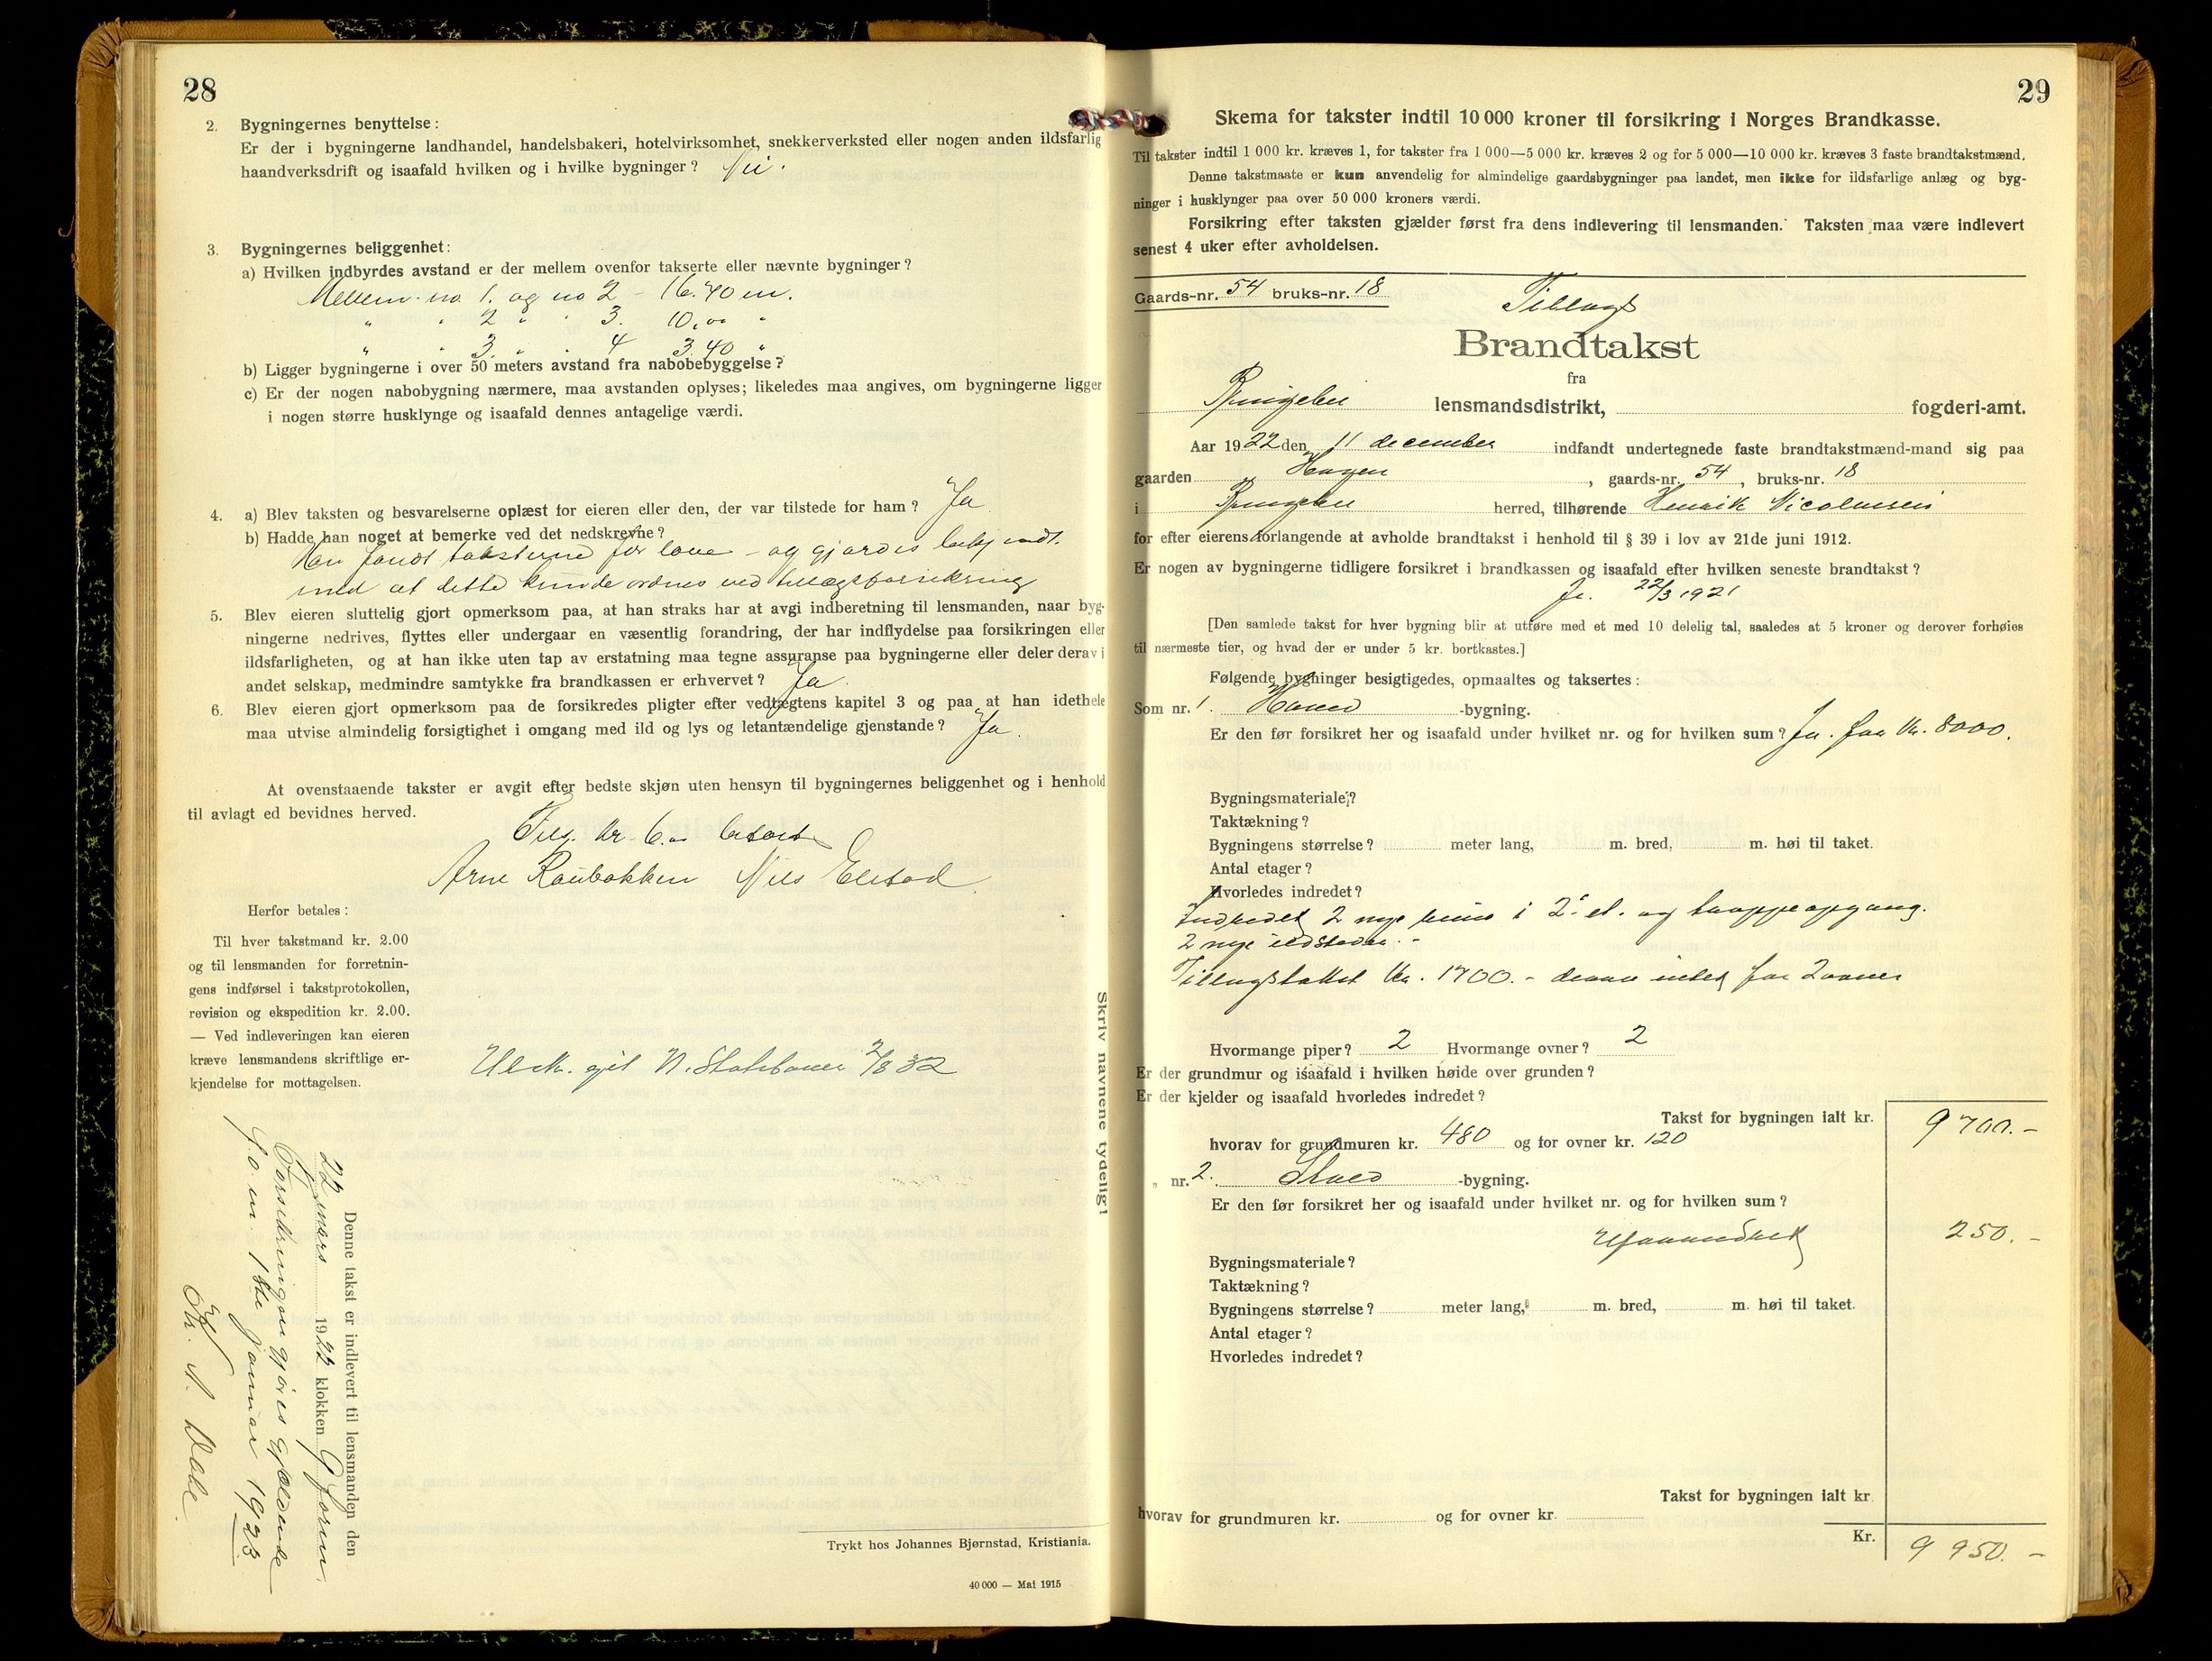 28
2. Bygningernes benyttelse:
Er der i bygningerne landhandel, handelsbakeri, hotelvirksomhet, snekkerverksted eller nogen anden ildsfarlig
haandverksdrift og isaafald hvilken og i hvilke bygninger? Nei.
3. Bygningernes beliggenhet:
a) Hvilken indbyrdes avstand er der mellem ovenfor takserte eller nævnte bygninger?
Mellem no 1. og no 2 - 16.40 m.
" " 2 " " 3. 10,00 "
" " 3. " " 4 3.40 "
b) Ligger bygningerne i over 50 meters avstand fra nabobebyggelse?
c) Er der nogen nabobygning nærmere, maa avstanden oplyses; likeledes maa angives, om bygningerne ligger
i nogen større husklynge og isaafald dennes antagelige værdi.
4. a) Blev taksten og besvarelserne oplæst for eieren eller den, der var tilstede for ham? Ja
b) Hadde han noget at bemerke ved det nedskrevne?
Han fandt taksterne for lave - og gjordes bekjendt
med at dette kunde ordnes ved tillægsforsikring
5. Blev eieren sluttelig gjort opmerksom paa, at han straks har at avgi indberetning til lensmanden, naar byg-
ningerne nedrives, flyttes eller undergaar en væsentlig forandring, der har indflydelse paa forsikringen eller
ildsfarligheten, og at han ikke uten tap av erstatning maa tegne assuranse paa bygningerne eller deler derav i
andet selskap, medmindre samtykke fra brandkassen er erhvervet? Ja.
6. Blev eieren gjort opmerksom paa de forsikredes pligter efter vedtægtens kapitel 3 og paa at han idethele
maa utvise almindelig forsigtighet i omgang med ild og lys og letantændelige gjenstande? Ja.
At ovenstaaende takster er avgit efter bedste skjøn uten hensyn til bygningernes beliggenhet og i henhold
til avlagt ed bevidnes herved.
kr. 6.
Arne Raubakken Nils Elstad
Herfor betales:
Til hver takstmand kr. 2.00
og til lensmanden for forretnin-
gens indførsel i takstprotokollen,
revision og ekspedition kr. 2.00.
— Ved indleveringen kan eieren
kræve lensmandens skriftlige er-
kjendelse for mottagelsen.
2/8 32
Denne takst er indlevert til lensmanden den
22 mars 1922 klokken 9 form.
Forsikringen gjøres gjældende
f.o.m. 1ste januar 1923
Skriv navnene tydelig!
Trykt hos Johannes Bjørnstad, Kristiania.
40 000 — Mai 1915
29
Skema for takster indtil 10 000 kroner til forsikring i Norges Brandkasse.
Til takster indtil 1 000 kr. kræves 1, for takster fra 1 000—5 000 kr. kræves 2 og for 5 000—10 000 kr. kræves 3 faste brandtakstmænd.
Denne takstmaate er kun anvendelig for almindelige gaardsbygninger paa landet, men ikke for ildsfarlige anlæg og byg-
ninger i husklynger paa over 50 000 kroners værdi.
Forsikring efter taksten gjælder først fra dens indlevering til lensmanden. Taksten maa være indlevert
senest 4 uker efter avholdelsen.
Gaards-nr. 54 bruks-nr. 18
Tillægs
Brandtakst
fra
Ringebu lensmandsdistrikt, fogderi-amt.
Aar 1922 den 11 december indfandt undertegnede faste brandtakstmænd-mand sig paa
gaarden Hagen, gaards-nr. 54, bruks-nr. 18
i Ringebu herred, tilhørende Henrik Nicolaisen
for efter eierens forlangende at avholde brandtakst i henhold til § 39 i lov av 21de juni 1912.
Er nogen av bygningerne tidligere forsikret i brandkassen og isaafald efter hvilken seneste brandtakst?
Ja. 22/3 1921
[Den samlede takst for hver bygning blir at utføre med et med 10 delelig tal, saaledes at 5 kroner og derover forhøies
til nærmeste tier, og hvad der er under 5 kr. bortkastes.]
Følgende bygninger besigtigedes, opmaaltes og taksertes:
Som nr. 1. Hoved -bygning.
Er den før forsikret her og isaafald under hvilket nr. og for hvilken sum? Ja. for Kr. 8000.
Bygningsmateriale?
Taktækning?
Bygningens størrelse? meter lang, m. bred, m. høi til taket.
Antal etager?
Hvorledes indredet?
Indredet 2 nye rum i 2. et. og trappeopgang.
2 nye ildsteder. -
Tillægstakst Kr. 1700. - derav intet for 2 ovner
Hvormange piper? 2 Hvormange ovner? 2
Er der grundmur og isaafald i hvilken høide over grunden?
Er der kjelder og isaafald hvorledes indredet?
Takst for bygningen ialt kr. 9700.-
hvorav for grundmuren kr. 480 og for ovner kr. 120
" nr. 2. -bygning.
Er den før forsikret her og isaafald under hvilket nr. og for hvilken sum?
Uforandret 250.-
Bygningsmateriale?
Taktækning?
Bygningens størrelse? meter lang, m. bred, m. høi til taket.
Antal etager?
Hvorledes indredet?
Takst for bygningen ialt kr.
hvorav for grundmuren kr. og for ovner kr.
Kr. 9 950.-